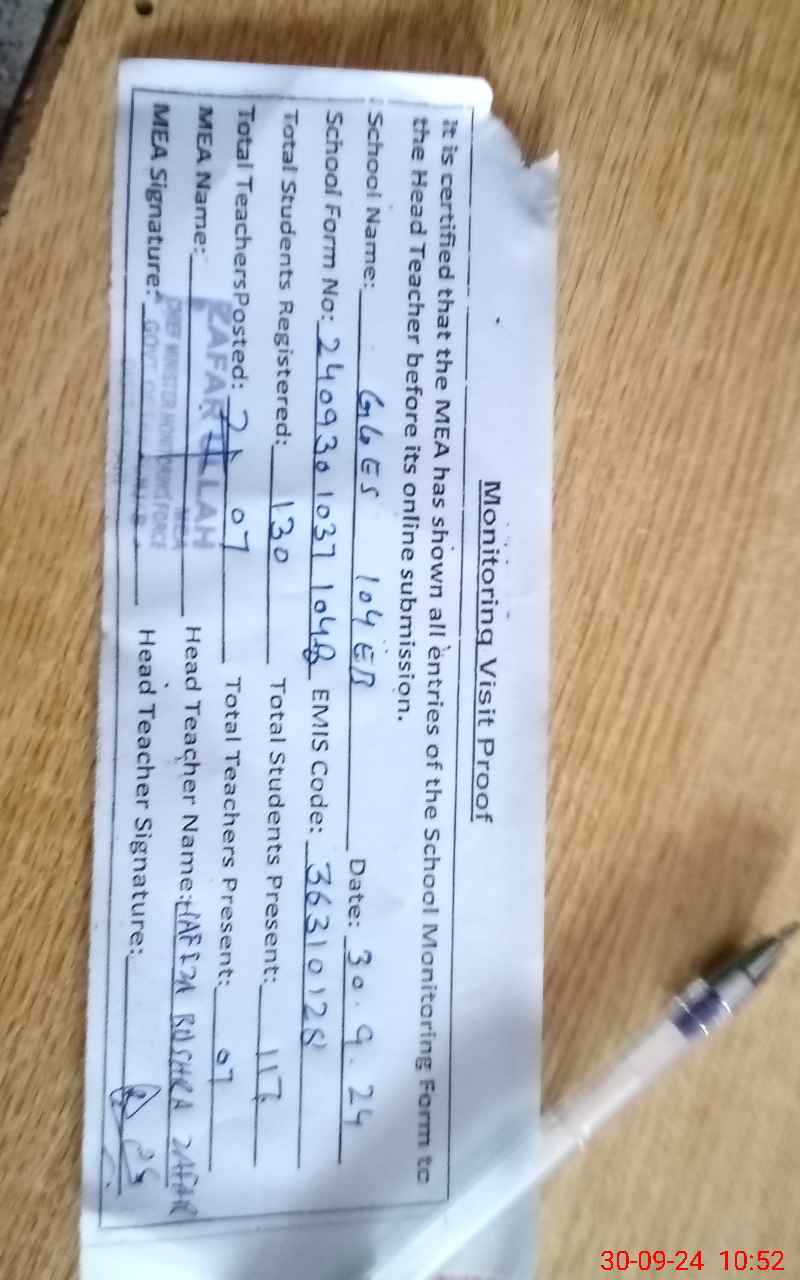 Monitoring Visit Proof
it is certified that the MEA has shown all entries of the School Monitoring Form to
the Head Teacher before its online submission.
School Name: GGES 104 EB Date: 30.9.24
School Form No: EMIS Code: 36310128
Total Students Registered: 130 Total Students Present:
Total TeachersPosted: 07 Total Teachers Present: 07
MEA Name: ZAFAR ULLAH Head Teacher Name: HAFIZA BUSHRA ZAFAR
MEA
MEA Signature: CHIEF MINISTER MONITORING FORCE Head Teacher Signature:
30-09-24 10:52